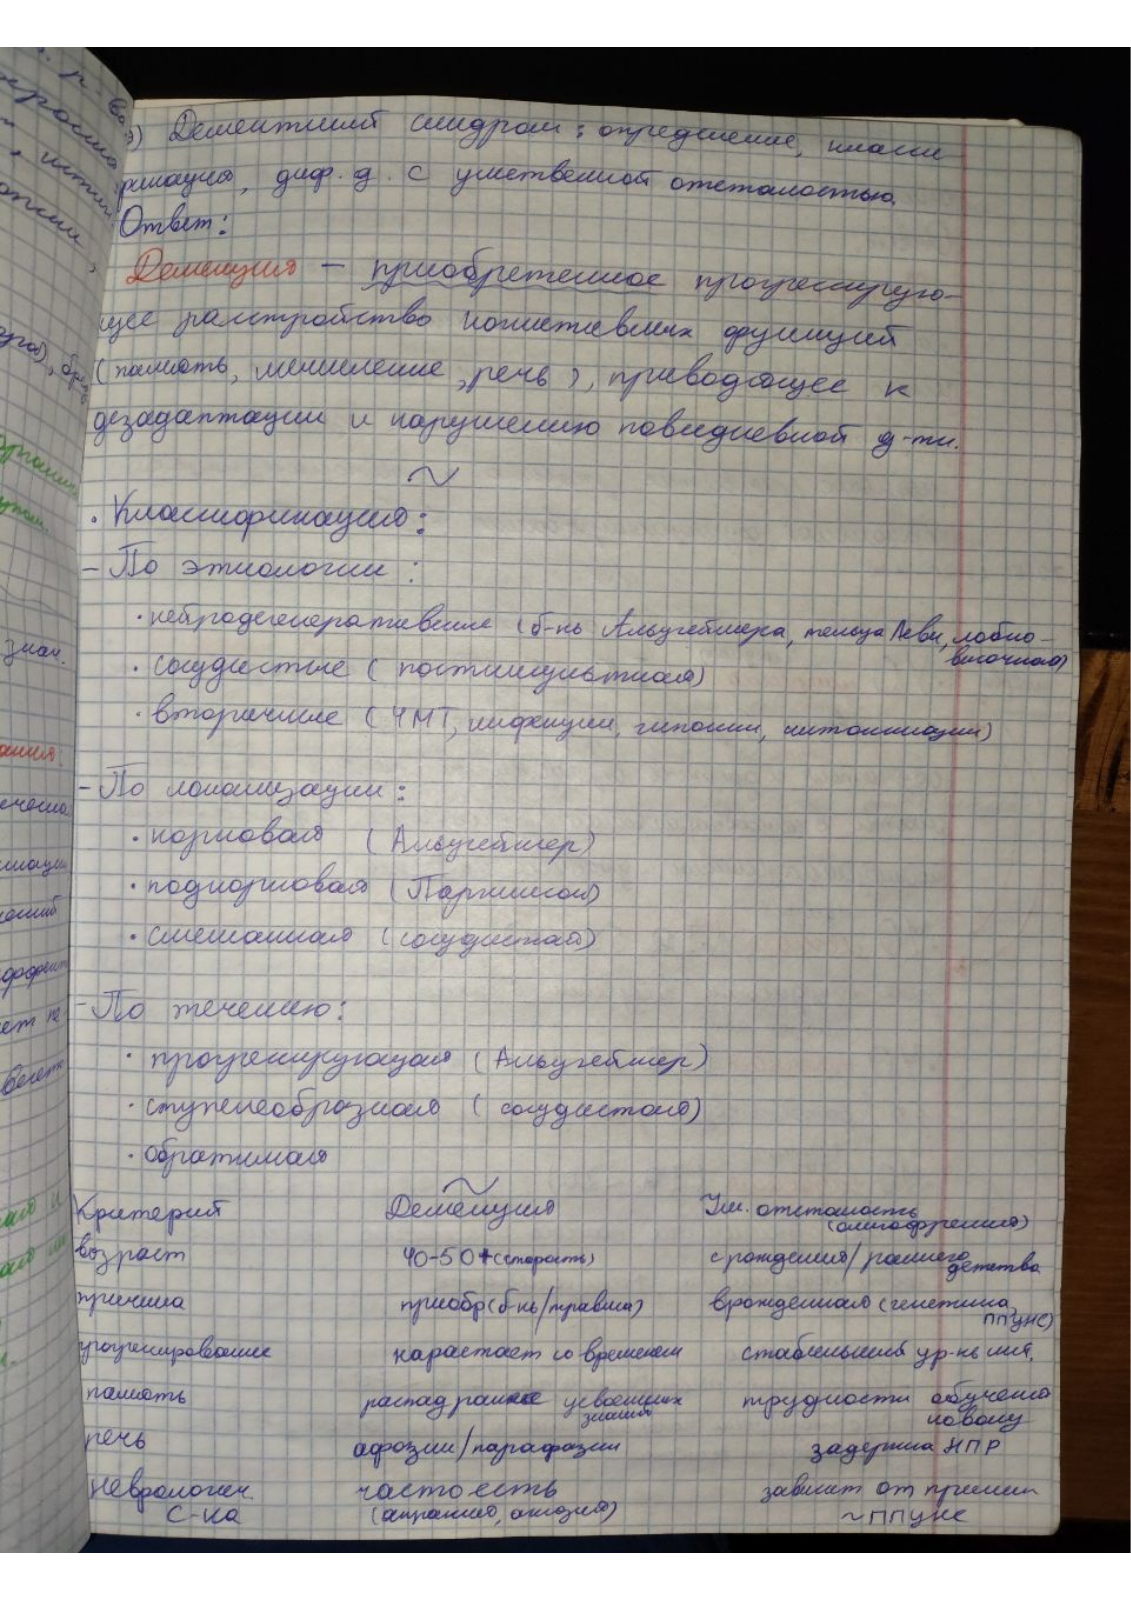 ) Дементный синдром: определение, класси
фикация, диф. д. с умственной отсталостью.
Ответ:
Деменция – приобретенное прогрессирую-
щее расстройство когнитивных функций
(память, мышление, речь), приводящее к
дезадаптации и нарушению повседневной д-ти.
· Классификация:
– По этиологии:
· нейродегенеративные (б-нь Альцгеймера, тельца Леви, лобно-
височная)
· сосудистые (постинсультная)
· вторичные (ЧМТ, инфекции, гипоксии, интоксикации)
– По локализации:
· корковая (Альцгеймер)
· подкорковая (Паркинсон)
· смешанная (сосудистая)
– По течению:
· прогрессирующая (Альцгеймер)
· ступенеобразная (сосудистая)
· обратимая
Критерий Деменция Ум. отсталость
(олигофрения)
возраст 40-50+(старость) с рождения/раннего
детства
причина приобр(б-нь/травма) врожденная (генетика,
ППЦНС)
прогрессирование нарастает со временем стабильный ур-нь инт.
память распад ранее усвоенных трудности обучения
знаний новому
речь афазии/парафазии задержка НПР
Неврологич. часто есть зависит от причин
С-ка (апраксия, агнозия) ~ППЦНС